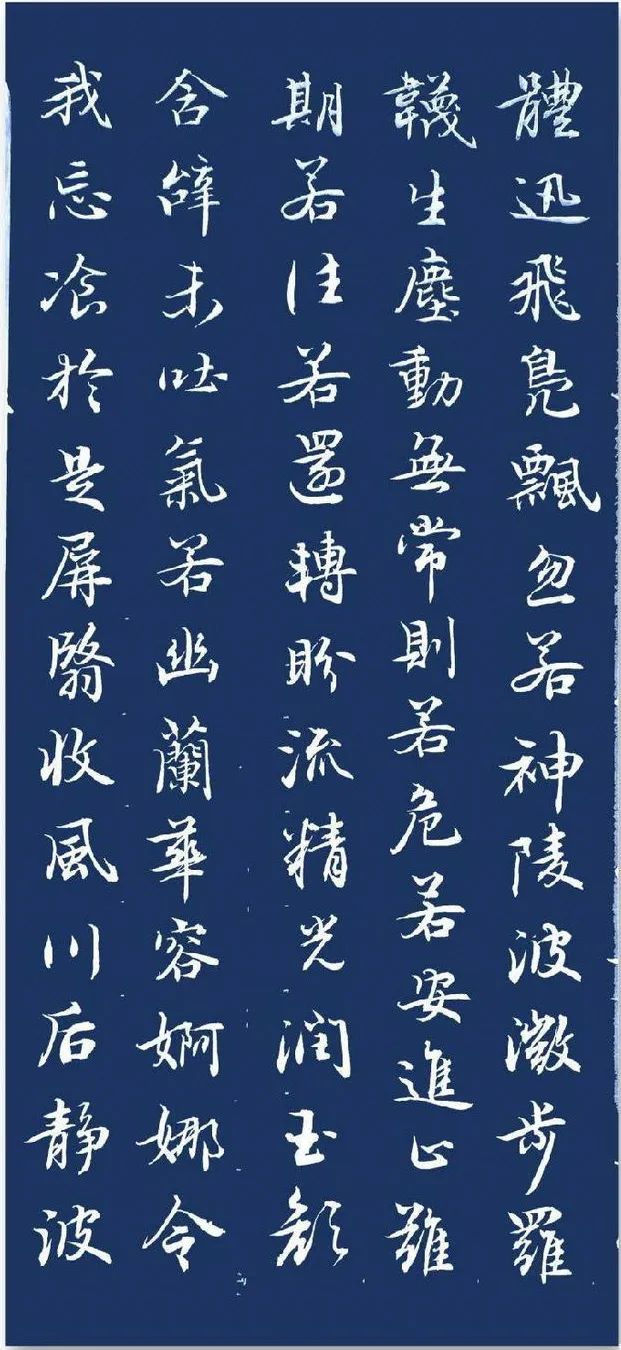 體迅飛鳧飄忽若神陵波微步羅
韈生塵動無常則若危若安進止難
期若往若還轉盼流精光潤玉顏
含辭未吐氣若幽蘭華容婀娜令
我忘飡於是屏翳收風川后靜波